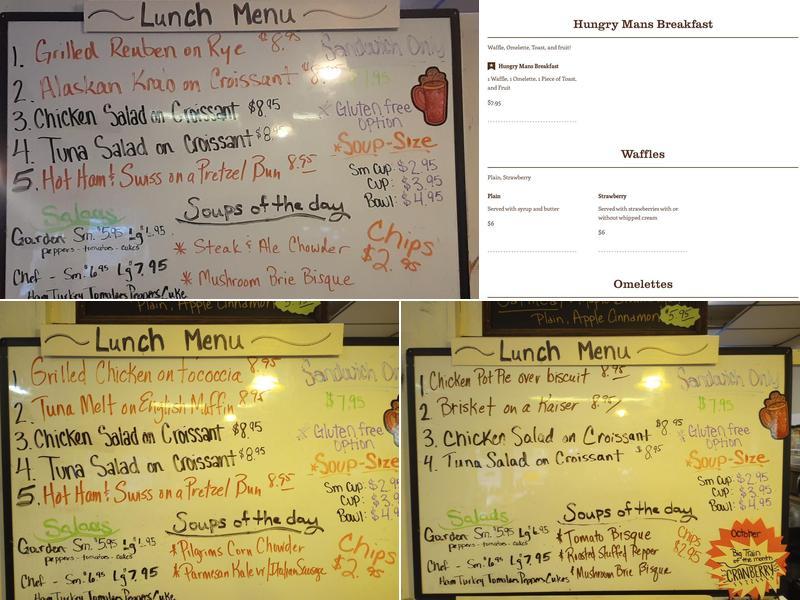 Lunch Menu
1. Grilled Reuben on Rye $8.95
2. Alaskan Krab on Croissant
3. Chicken Salad on Croissant $8.95
4. Tuna Salad on Croissant $8.95
5. Hot Ham & Swiss on a Pretzel Bun 8.95
Sandwich Only
$7.95
Gluten free
option
*Soup-Size
Sm Cup: $2.95
Cup: $3.95
Bowl: $4.95
Chips
$2.95
Salads
Garden Sm. $5.95 Lg
peppers - tomatoes - cukes
Chef - Sm. $6.95 Lg 7.95
Ham Turkey Tomatoes Peppers Cuke
Soups of the day
* Steak & Ale Chowder
* Mushroom Brie Bisque
Hungry Mans Breakfast
Waffle, Omelette, Toast, and fruit!
Hungry Mans Breakfast
1 Waffle, 1 Omelette, 1 Piece of Toast,
and Fruit
$7.95
Waffles
Plain, Strawberry
Plain
Served with syrup and butter
$6
Strawberry
Served with strawberries with or
without whipped cream
$6
Omelettes
Plain, Apple Cinnamon
Lunch Menu
1. Grilled Chicken on Fococcia 8.95
2. Tuna Melt on English Muffin 8.95
3. Chicken Salad on Croissant $8.95
4. Tuna Salad on Croissant $8.95
5. Hot Ham & Swiss on a Pretzel Bun 8.95
Sandwich Only
$7.95
Gluten free
option
*Soup-Size
Sm Cup: $2.9
Cup: $3.9
Bowl: $4.9
Chips
$2.95
Salads
Garden Sm. $5.95 Lg
peppers - tomatoes - cukes
Chef - Sm. $6.95 Lg 7.95
Ham Turkey Tomatoes Peppers Cuke
Soups of the day
* Pilgrims Corn Chowder
* Parmesan Kale w/ Italian Sausage
Plain, Apple Cinnamon $5.95
Lunch Menu
1 Chicken Pot Pie over biscuit 8.95
2 Brisket on a Kaiser 8.95
3. Chicken Salad on Croissant $8.95
4. Tuna Salad on Croissant $8.95
Sandwich Only
$7.95
Gluten free
option
*Soup-Size
Sm Cup: $2.95
Cup: $3.95
Bowl: $4.95
Chips
$2.95
Salads
Garden Sm. $5.95 Lg $6.95
peppers - tomatoes - cukes
Chef - Sm. $6.95 Lg 7.95
Ham Turkey Tomatoes Peppers Cukes
Soups of the day
* Tomato Bisque
* Roasted Stuffed Pepper
* Mushroom Brie Bisque
October
of the month
CRANBERRY